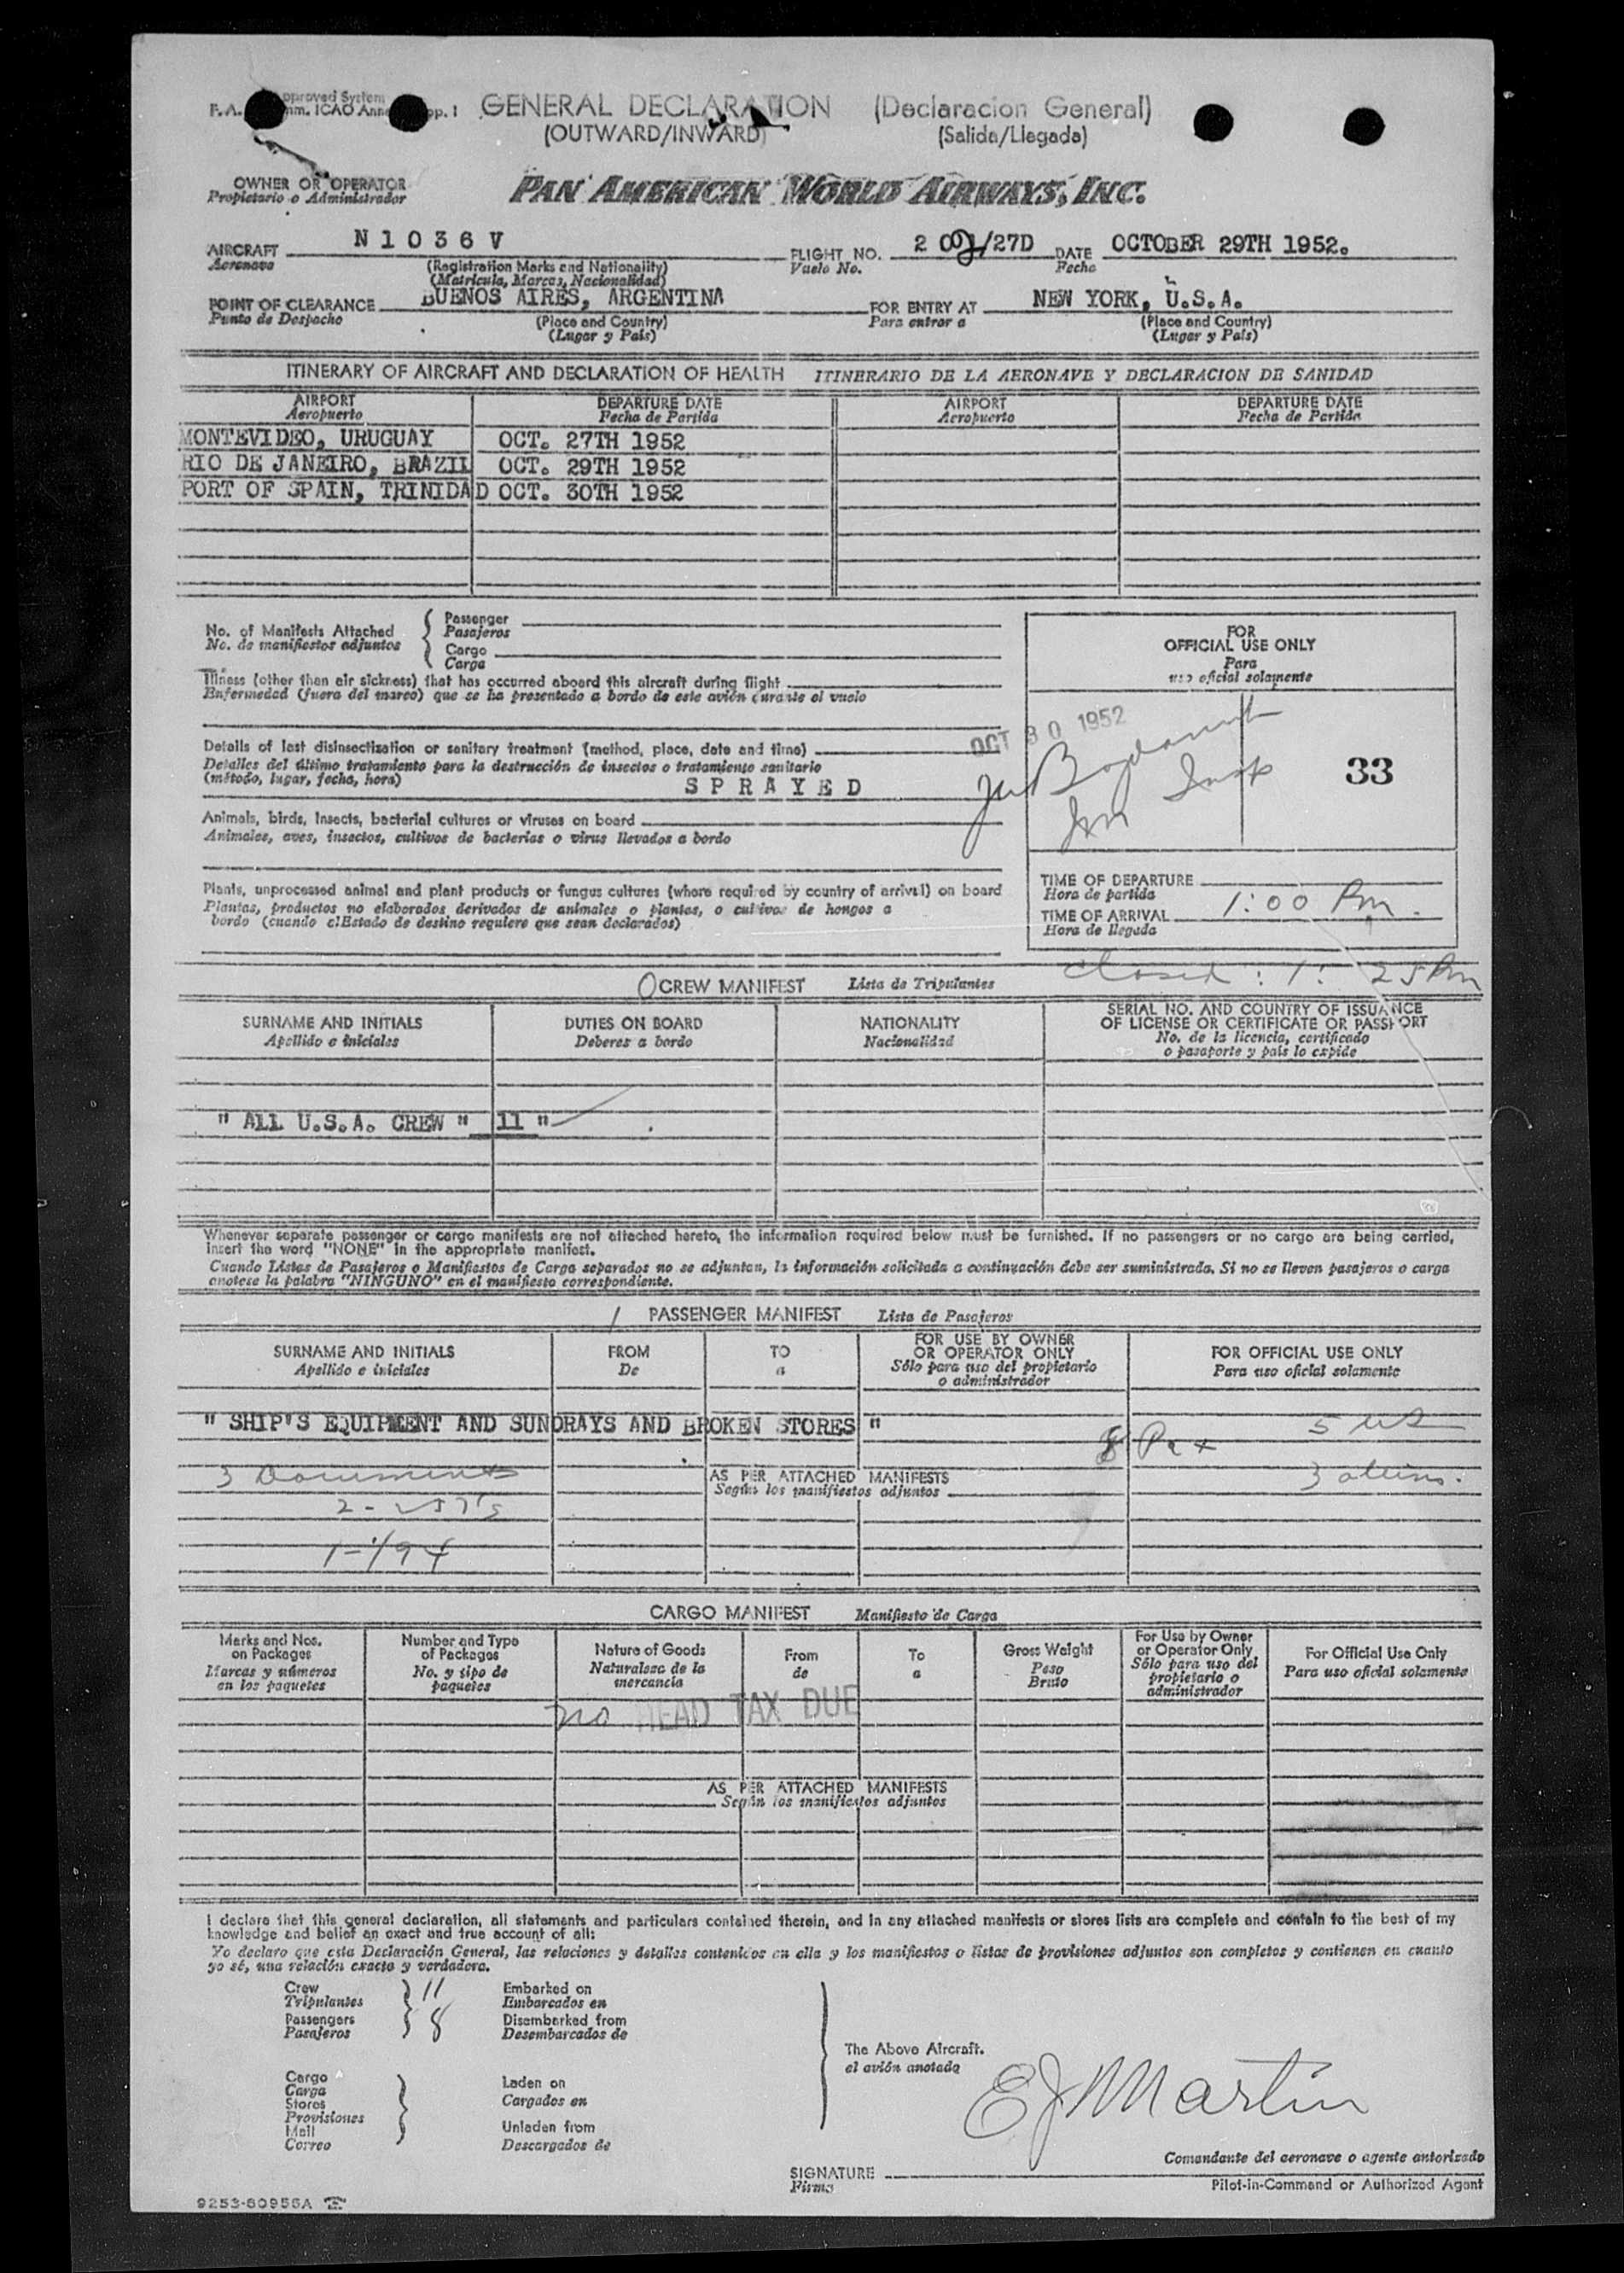 Approved System
F.A. mm. ICAO Anne pp. 1
GENERAL DECLARATION (Declaracion General)
(OUTWARD/INWARD) (Salida/Llegada)
OWNER OR OPERATOR
Propietario o Administrador
PAN AMERICAN WORLD AIRWAYS, INC.
AIRCRAFT N 1 0 3 6 V FLIGHT NO. 2 02/27D DATE OCTOBER 29TH 1952.
Aeronave (Registration Marks and Nationality) Vuelo No. Fecha
(Matricula, Marcas, Nacionalidad)
POINT OF CLEARANCE BUENOS AIRES, ARGENTINA FOR ENTRY AT NEW YORK, U.S.A.
Punto de Despacho (Place and Country) Para entrar a (Place and Country)
(Lugar y País) (Lugar y País)
ITINERARY OF AIRCRAFT AND DECLARATION OF HEALTH ITINERARIO DE LA AERONAVE Y DECLARACION DE SANIDAD
AIRPORT DEPARTURE DATE AIRPORT DEPARTURE DATE
Aeropuerto Fecha de Partida Aeropuerto Fecha de Partida
MONTEVIDEO, URUGUAY OCT. 27TH 1952
RIO DE JANEIRO, BRAZIL OCT. 29TH 1952
PORT OF SPAIN, TRINIDAD OCT. 30TH 1952
No. of Manifests Attached
No. de manifiestos adjuntos
Passenger
Pasajeros
Cargo
Carga
Illness (other than air sickness) that has occurred aboard this aircraft during flight
Enfermedad (fuera del mareo) que se ha presentado a bordo de este avión durante el vuelo
Details of last disinsectization or sanitary treatment (method, place, date and time)
Detalles del último tratamiento para la destrucción de insectos o tratamiento sanitario
(método, lugar, fecha, hora)
S P R A Y E D
Animals, birds, insects, bacterial cultures or viruses on board
Animales, aves, insectos, cultivos de bacterias o virus llevados a bordo
Plants, unprocessed animal and plant products or fungus cultures (where required by country of arrival) on board
Plantas, productos no elaborados derivados de animales o plantas, o cultivos de hongos a
bordo (cuando el Estado de destino requiere que sean declarados)
FOR
OFFICIAL USE ONLY
Para
uso oficial solamente
OCT 30 1952
33
TIME OF DEPARTURE
Hora de partida
TIME OF ARRIVAL 1:00 Pm.
Hora de llegada
Closed : 1: 25 Pm
0 CREW MANIFEST Lista de Tripulantes
SURNAME AND INITIALS DUTIES ON BOARD NATIONALITY SERIAL NO. AND COUNTRY OF ISSUANCE
OF LICENSE OR CERTIFICATE OR PASSPORT
Apellido e iniciales Deberes a bordo Nacionalidad No. de la licencia, certificado
o pasaporte y país lo expide
" ALL U.S.A. CREW " 11 "
Whenever separate passenger or cargo manifests are not attached hereto, the information required below must be furnished. If no passengers or no cargo are being carried,
insert the word "NONE" in the appropriate manifest.
Cuando Listas de Pasajeros o Manifiestos de Carga separados no se adjuntan, la información solicitada a continuación debe ser suministrada. Si no se lleven pasajeros o carga
anotese la palabra "NINGUNO" en el manifiesto correspondiente.
/ PASSENGER MANIFEST Lista de Pasajeros
SURNAME AND INITIALS FROM TO FOR USE BY OWNER
OR OPERATOR ONLY FOR OFFICIAL USE ONLY
Apellido e iniciales De a Sólo para uso del propietario
o administrador Para uso oficial solamente
" SHIP'S EQUIPMENT AND SUNDRAYS AND BROKEN STORES "
8 Pax 5 US
3 aliens.
3 Documents
AS PER ATTACHED MANIFESTS
Según los manifiestos adjuntos
1-I/94
CARGO MANIFEST Manifiesto de Carga
Marks and Nos.
on Packages
Marcas y números
en los paquetes
Number and Type
of Packages
No. y tipo de
paquetes
Nature of Goods
Naturaleza de la
mercancia
From
de
To
a
Gross Weight
Peso
Bruto
For Use by Owner
or Operator Only
Sólo para uso del
propietario o
administrador
For Official Use Only
Para uso oficial solamente
no HEAD TAX DUE
AS PER ATTACHED MANIFESTS
Según los manifiestos adjuntos
I declare that this general declaration, all statements and particulars contained therein, and in any attached manifests or stores lists are complete and contain to the best of my
knowledge and belief an exact and true account of all:
Yo declaro que esta Declaración General, las relaciones y detalles contenidos en ella y los manifiestos o listas de provisiones adjuntos son completos y contienen en cuanto
yo sé, una relación exacta y verdadera.
Crew 11 Embarked on
Tripulantes Embarcados en
Passengers 8 Disembarked from
Pasajeros Desembarcados de
The Above Aircraft.
el avión anotado
Cargo
Carga
Stores
Provisiones
Mail
Correo
Laden on
Cargados en
Unladen from
Descargados de
EJ Martin
Comandante del aeronave o agente autorizado
SIGNATURE
Firma
Pilot-in-Command or Authorized Agent
9253-60956A